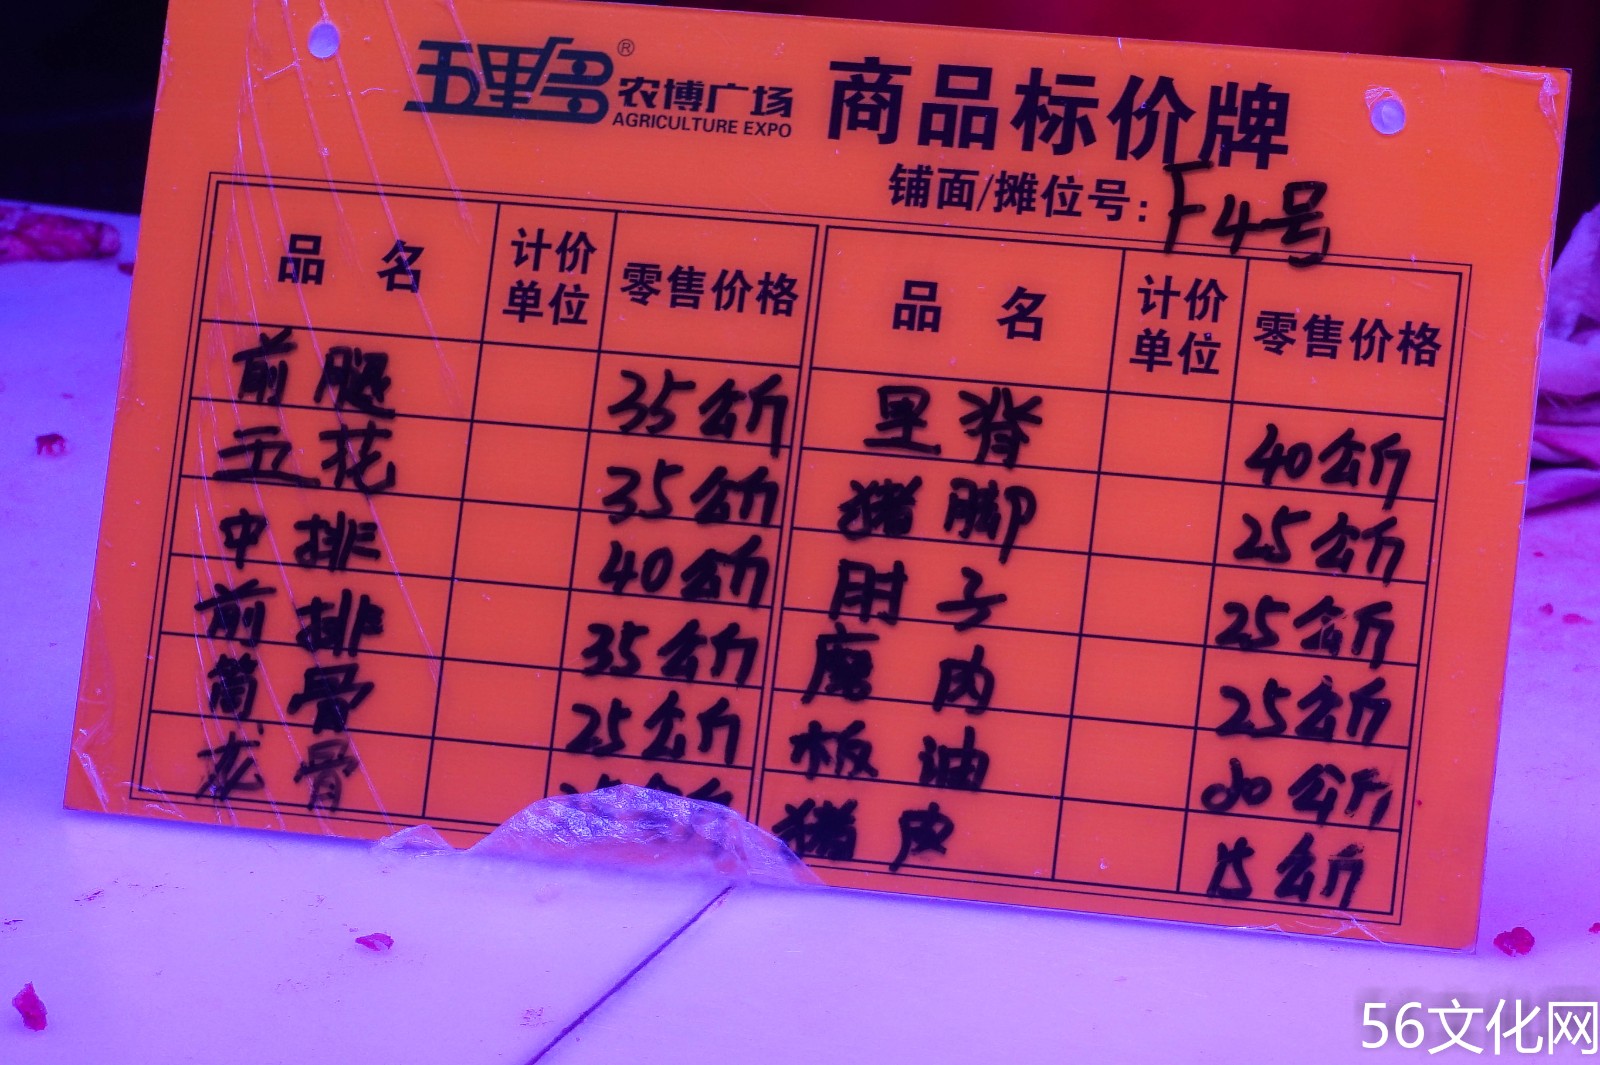 五里多® 农博广场 商品标价牌
AGRICULTURE EXPO
铺面/摊位号: F4号
品 名 计价单位 零售价格 品 名 计价单位 零售价格
前腿 35公斤 里脊 40公斤
五花 35公斤 猪脚 25公斤
中排 40公斤 肘子 25公斤
前排 35公斤 磨肉 25公斤
筒骨 25公斤 板油 公斤
龙骨 猪皮 15公斤
56文化网